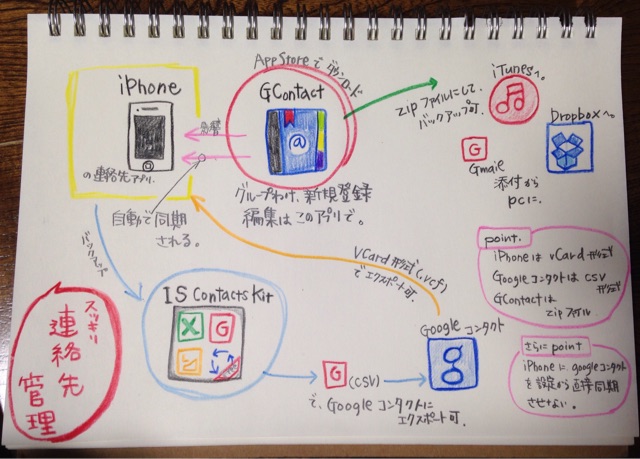 iPhone
の連絡先アプリ.
自動で同期
される。
App Storeでダウンロード
GContact
@
グループわけ、新規登録
編集はこのアプリで。
zipファイルにして、
バックアップ可.
iTunesへ。
Dropboxへ。
G
Gmaile
添付から
PCに.
バックアップ
IS Contacts Kit
X
G
vCard形式(.vcf)
でエクスポート可.
Google コンタクト
g
G
(CSV)
で、Google コンタクトに
エクスポート可.
point.
iPhoneは vCard 形式
Googleコンタクトは CSV
形式
GContactは
zipファイル
さらにpoint
iPhoneに、googleコンタクト
を設定から直接同期
させない。
スッキリ
連絡先
管理